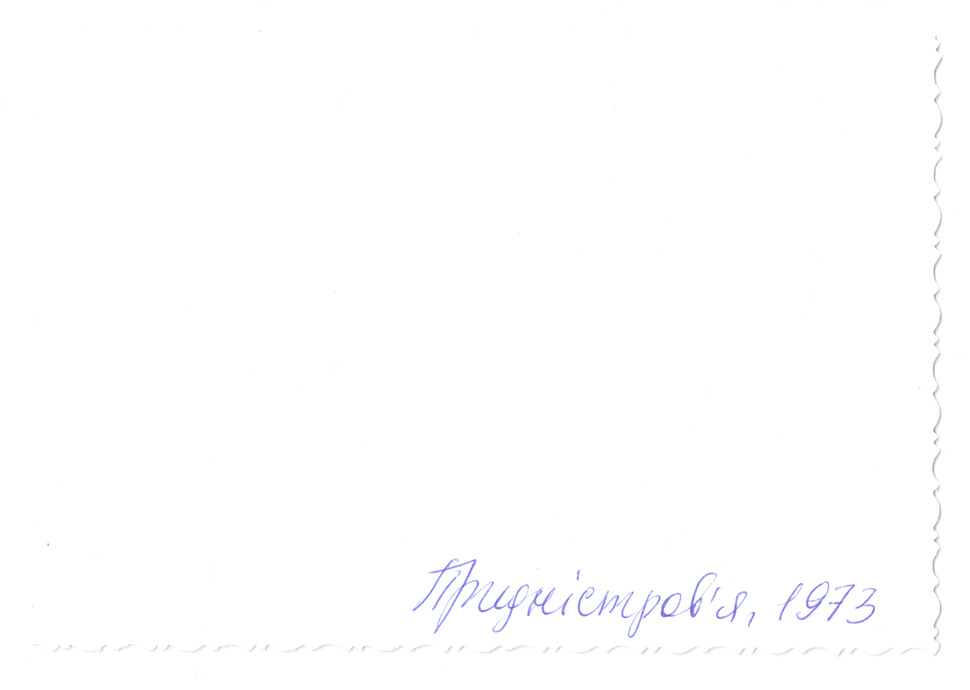 Придністров'я, 1973